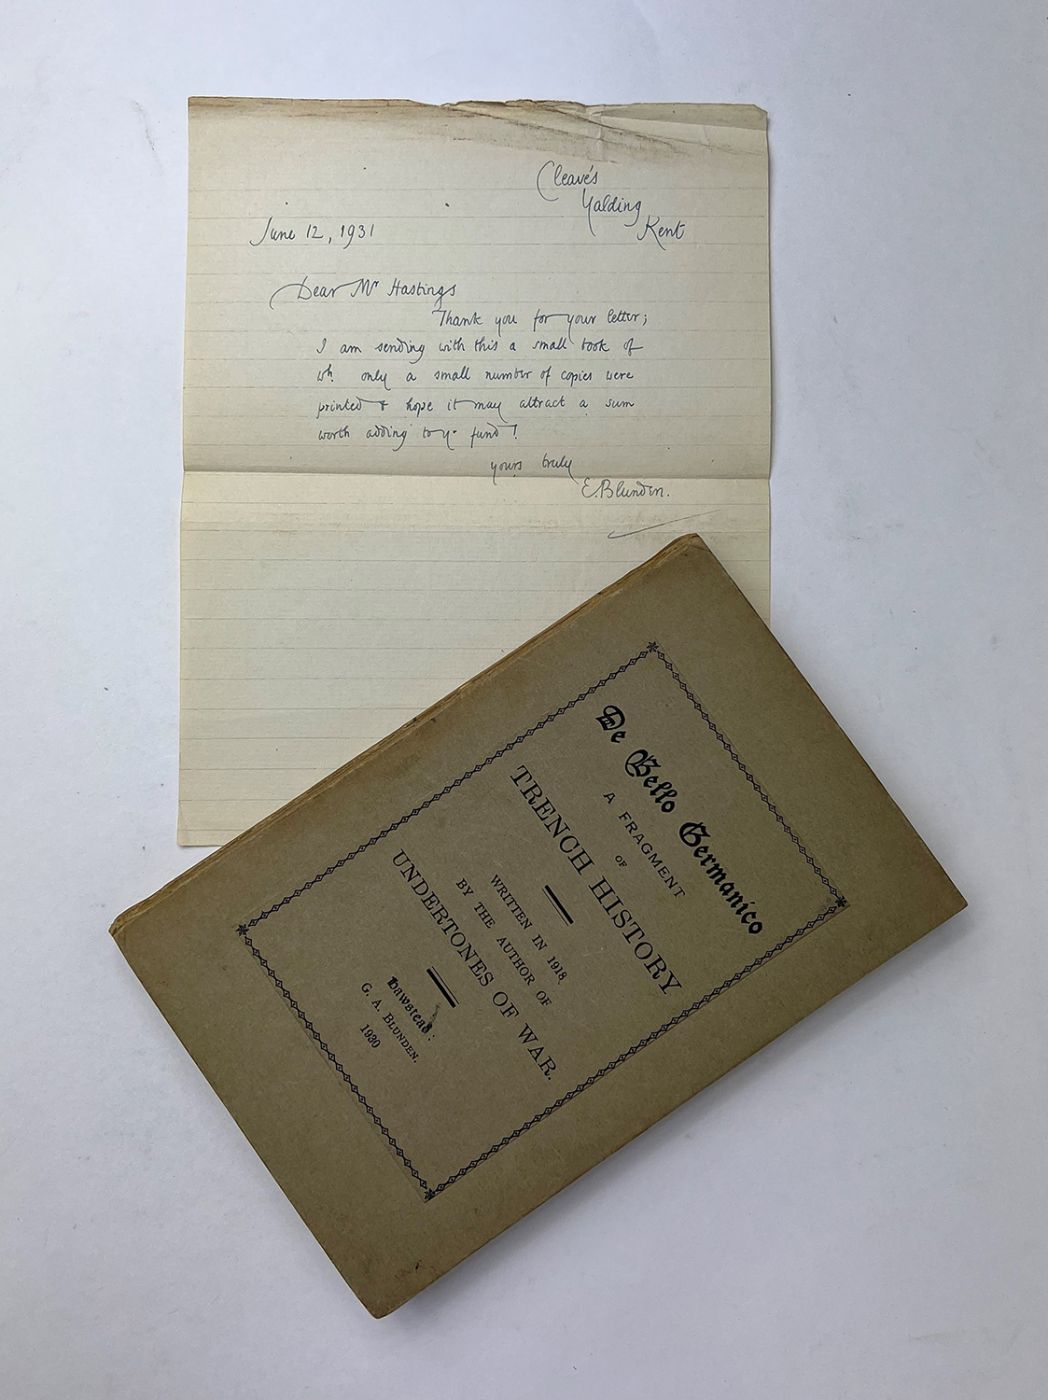 Cleave's
Yalding
Kent
June 12, 1931
Dear Mr Hastings
Thank you for your letter;
I am sending with this a small book of
wh. only a small number of copies were
printed & hope it may attract a sum
worth adding to yr. fund!
yours truly
E. Blunden.
De Bello Germanico
A FRAGMENT
OF
TRENCH HISTORY
WRITTEN IN 1918
BY THE AUTHOR OF
UNDERTONES OF WAR.
Hawstead:
G. A. BLUNDEN.
1930